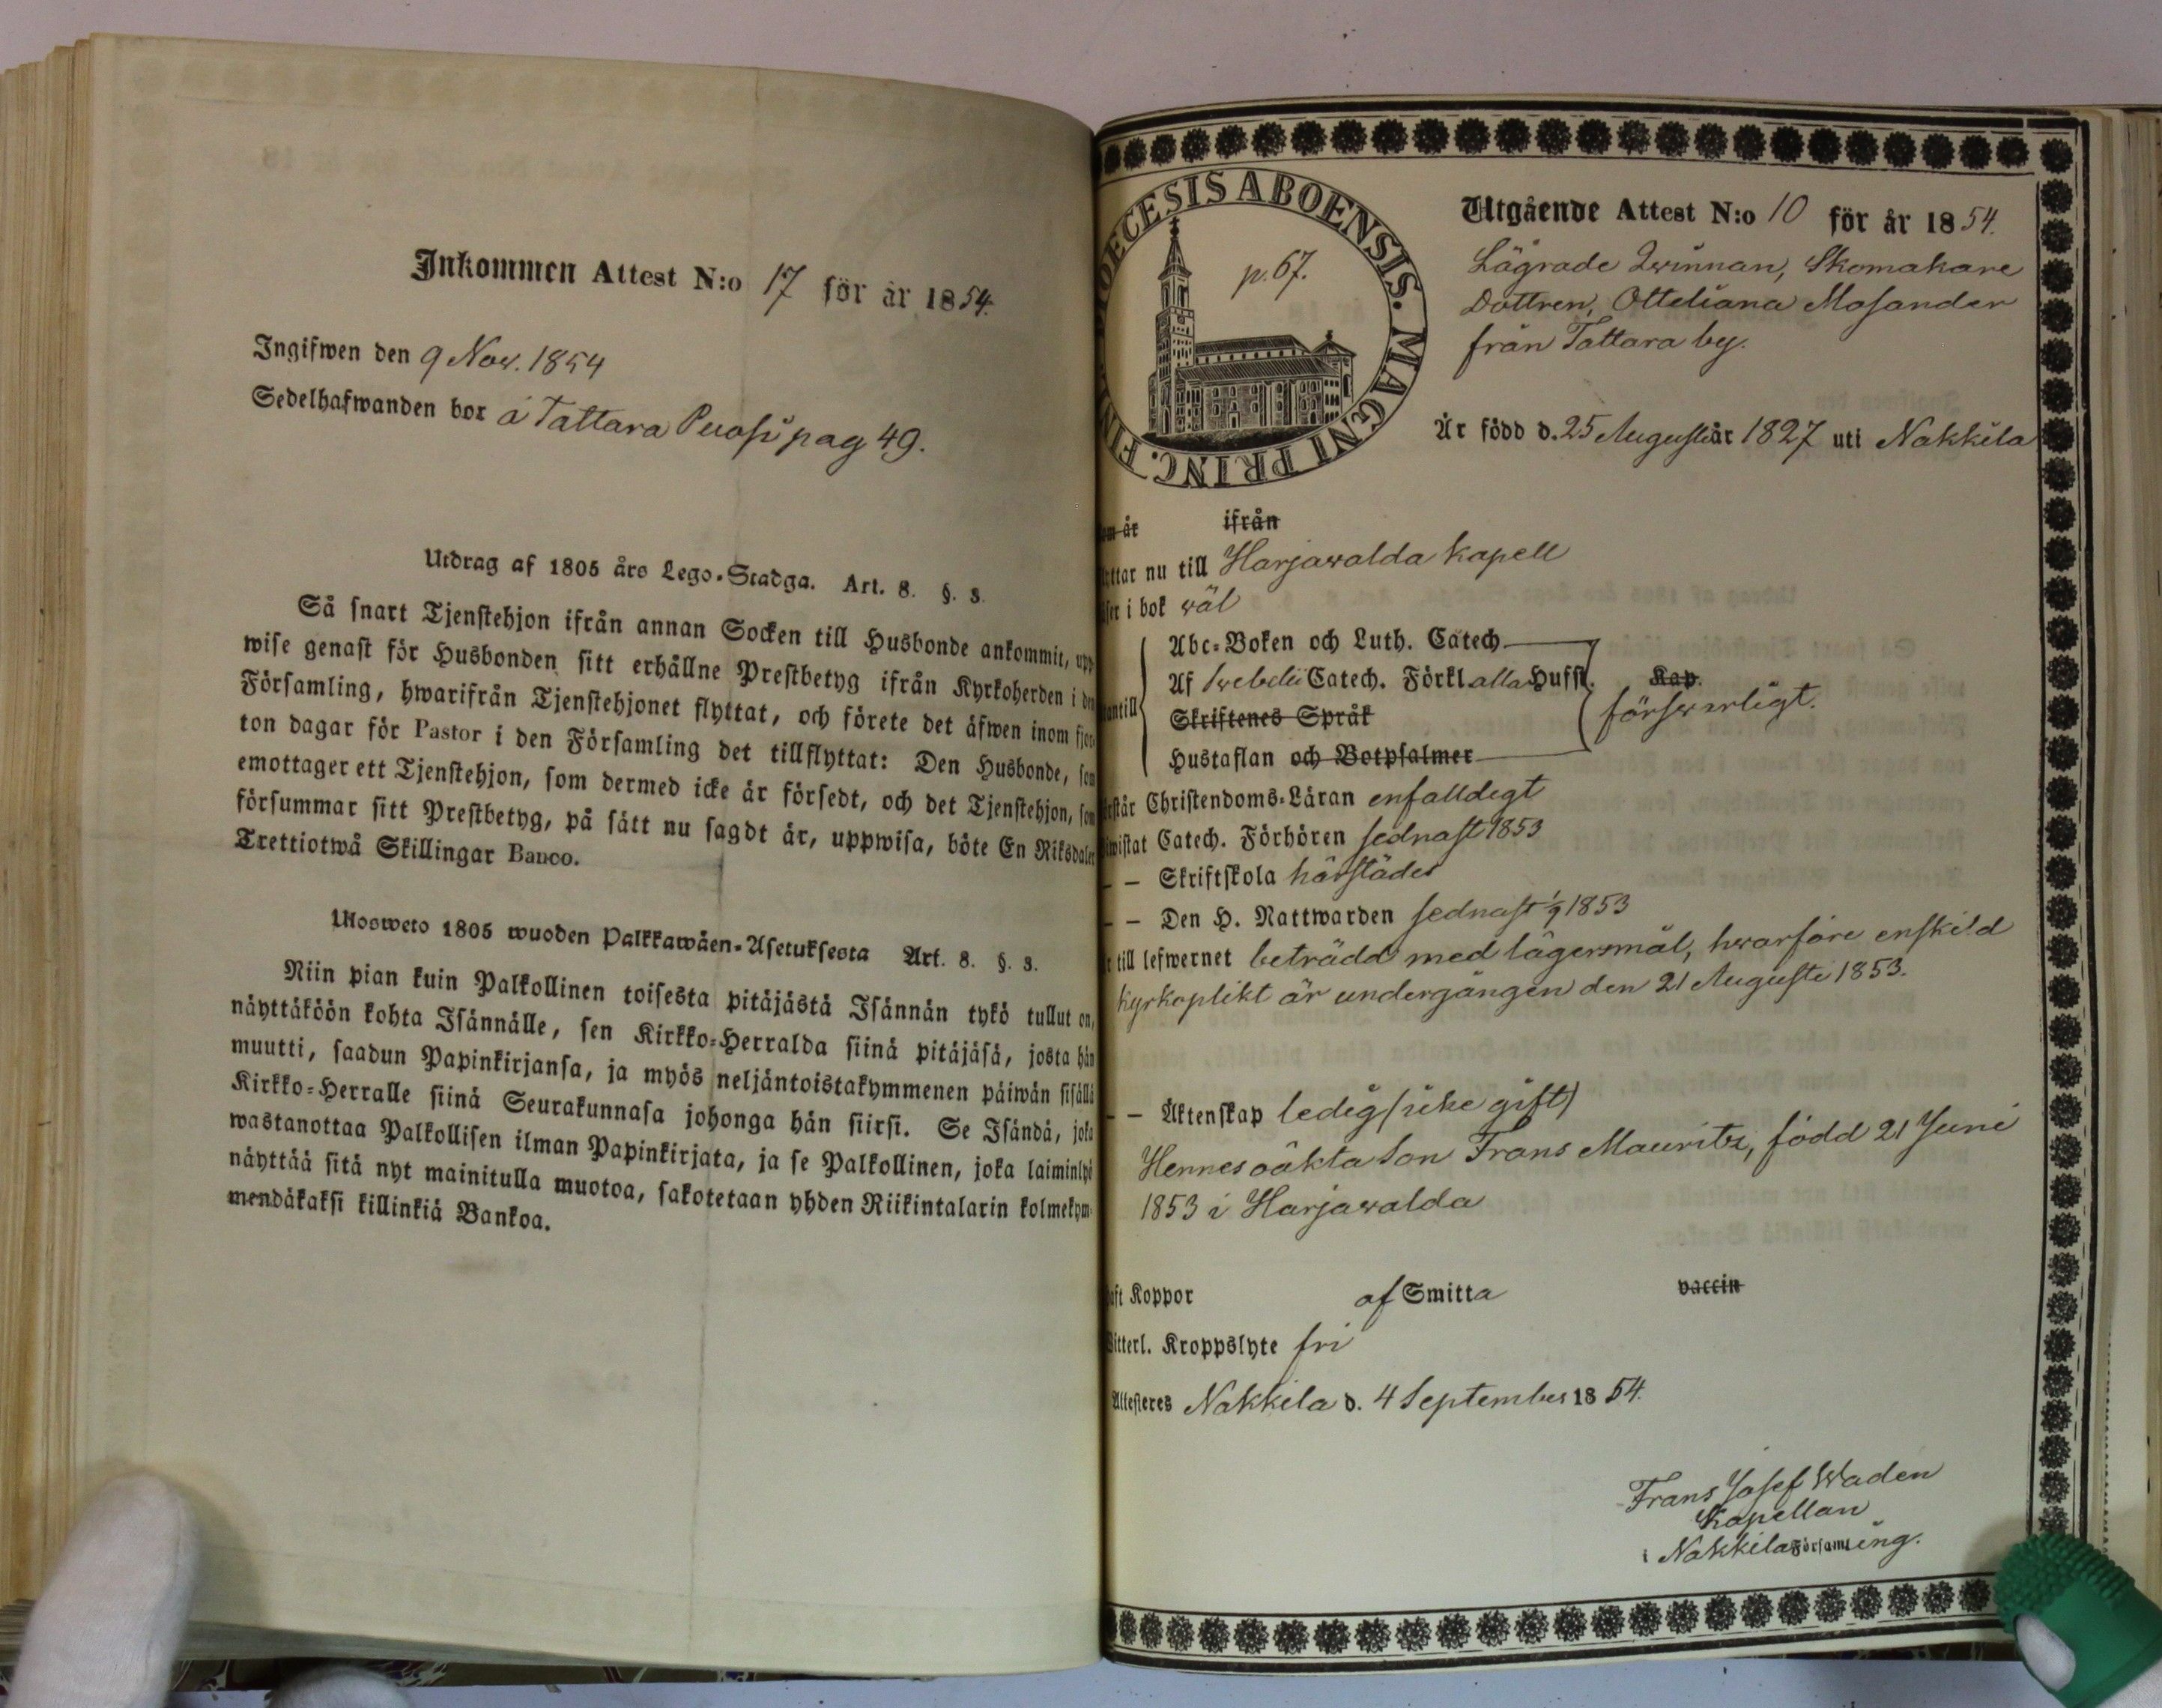 Inkommen Attest N:o 17 för år 1854.
Ingifwen den 9 Nov. 1854
Sedelhafwanden bor å Tattara Puosi pag 49.
Utdrag af 1805 års Lego-Stadga. Art. 8. §. 3.
Så snart Tjenstehjon ifrån annan Socken till Husbonde ankommit, upp-
wise genast för Husbonden sitt erhållne Prestbetyg ifrån Kyrkoherden i den
Församling, hwarifrån Tjenstehjonet flyttat, och förete det äfwen inom fjor-
ton dagar för Pastor i den Församling det tillflyttat: Den Husbonde, som
emottager ett Tjenstehjon, som dermed icke är försedt, och det Tjenstehjon, som
försummar sitt Prestbetyg, på sätt nu sagdt är, uppwisa, böte En Riksdaler
Trettiotwå Skillingar Banco.
Ulosweto 1805 wuoden Palkkawäen-Asetuksesta Art. 8. §. 3.
Niin pian kuin Palkollinen toisesta pitäjästä Isännän tykö tullut on,
näyttäköön kohta Isännälle, sen Kirkko-Herralda siinä pitäjäsä, josta hän
muutti, saadun Papinkirjansa, ja myös neljäntoistakymmenen päiwän sisällä
Kirkko-Herralle siinä Seurakunnasa johonga hän siirsi. Se Isändä, joka
wastanottaa Palkollisen ilman Papinkirjata, ja se Palkollinen, joka laiminlyö
näyttää sitä nyt mainitulla muotoa, sakotetaan yhden Riikintalarin kolmekym-
mendäkaksi killinkiä Bankoa.
DIOECESIS ABOENSIS. MAGNI PRINC. FIN
p. 67.
Utgående Attest N:o 10 för år 1854.
Lägrade Qwinnan, Skomakare
Dottren, Otteliana Mosander
från Tattara by.
Är född d. 25 Augusti år 1827 uti Nakkila
om år ifrån
yttar nu till Harjawalda Kapell
äser i bok wäl
Abc-Boken och Luth. Catech
Af Swebelii Catech. Förkl. alla Hufst. Kap.
antill Skriftenes Språk förswarligt.
Hustaflan och Botpsalmer
rstår Christendoms-Läran enfalldigt
wistat Catech. Förhören sednast 1853
— — Skriftskola härstädes
— — Den H. Nattwarden sednast 1/9 1853
r till lefwernet beträdd med lägersmål, hwarföre enskild
kyrkoplikt är undergången den 21 Augusti 1853.
— — Äktenskap ledig (icke gift)
Hennes oäkta Son Frans Mauritz, född 21 Juni
1853 i Harjawalda
aft Koppor af Smitta vaccin
itterl. Kroppslyte fri
Attesteres Nakkila d. 4 September 1854.
Frans Josef Waden
Kapellan
i Nakkila Församling.